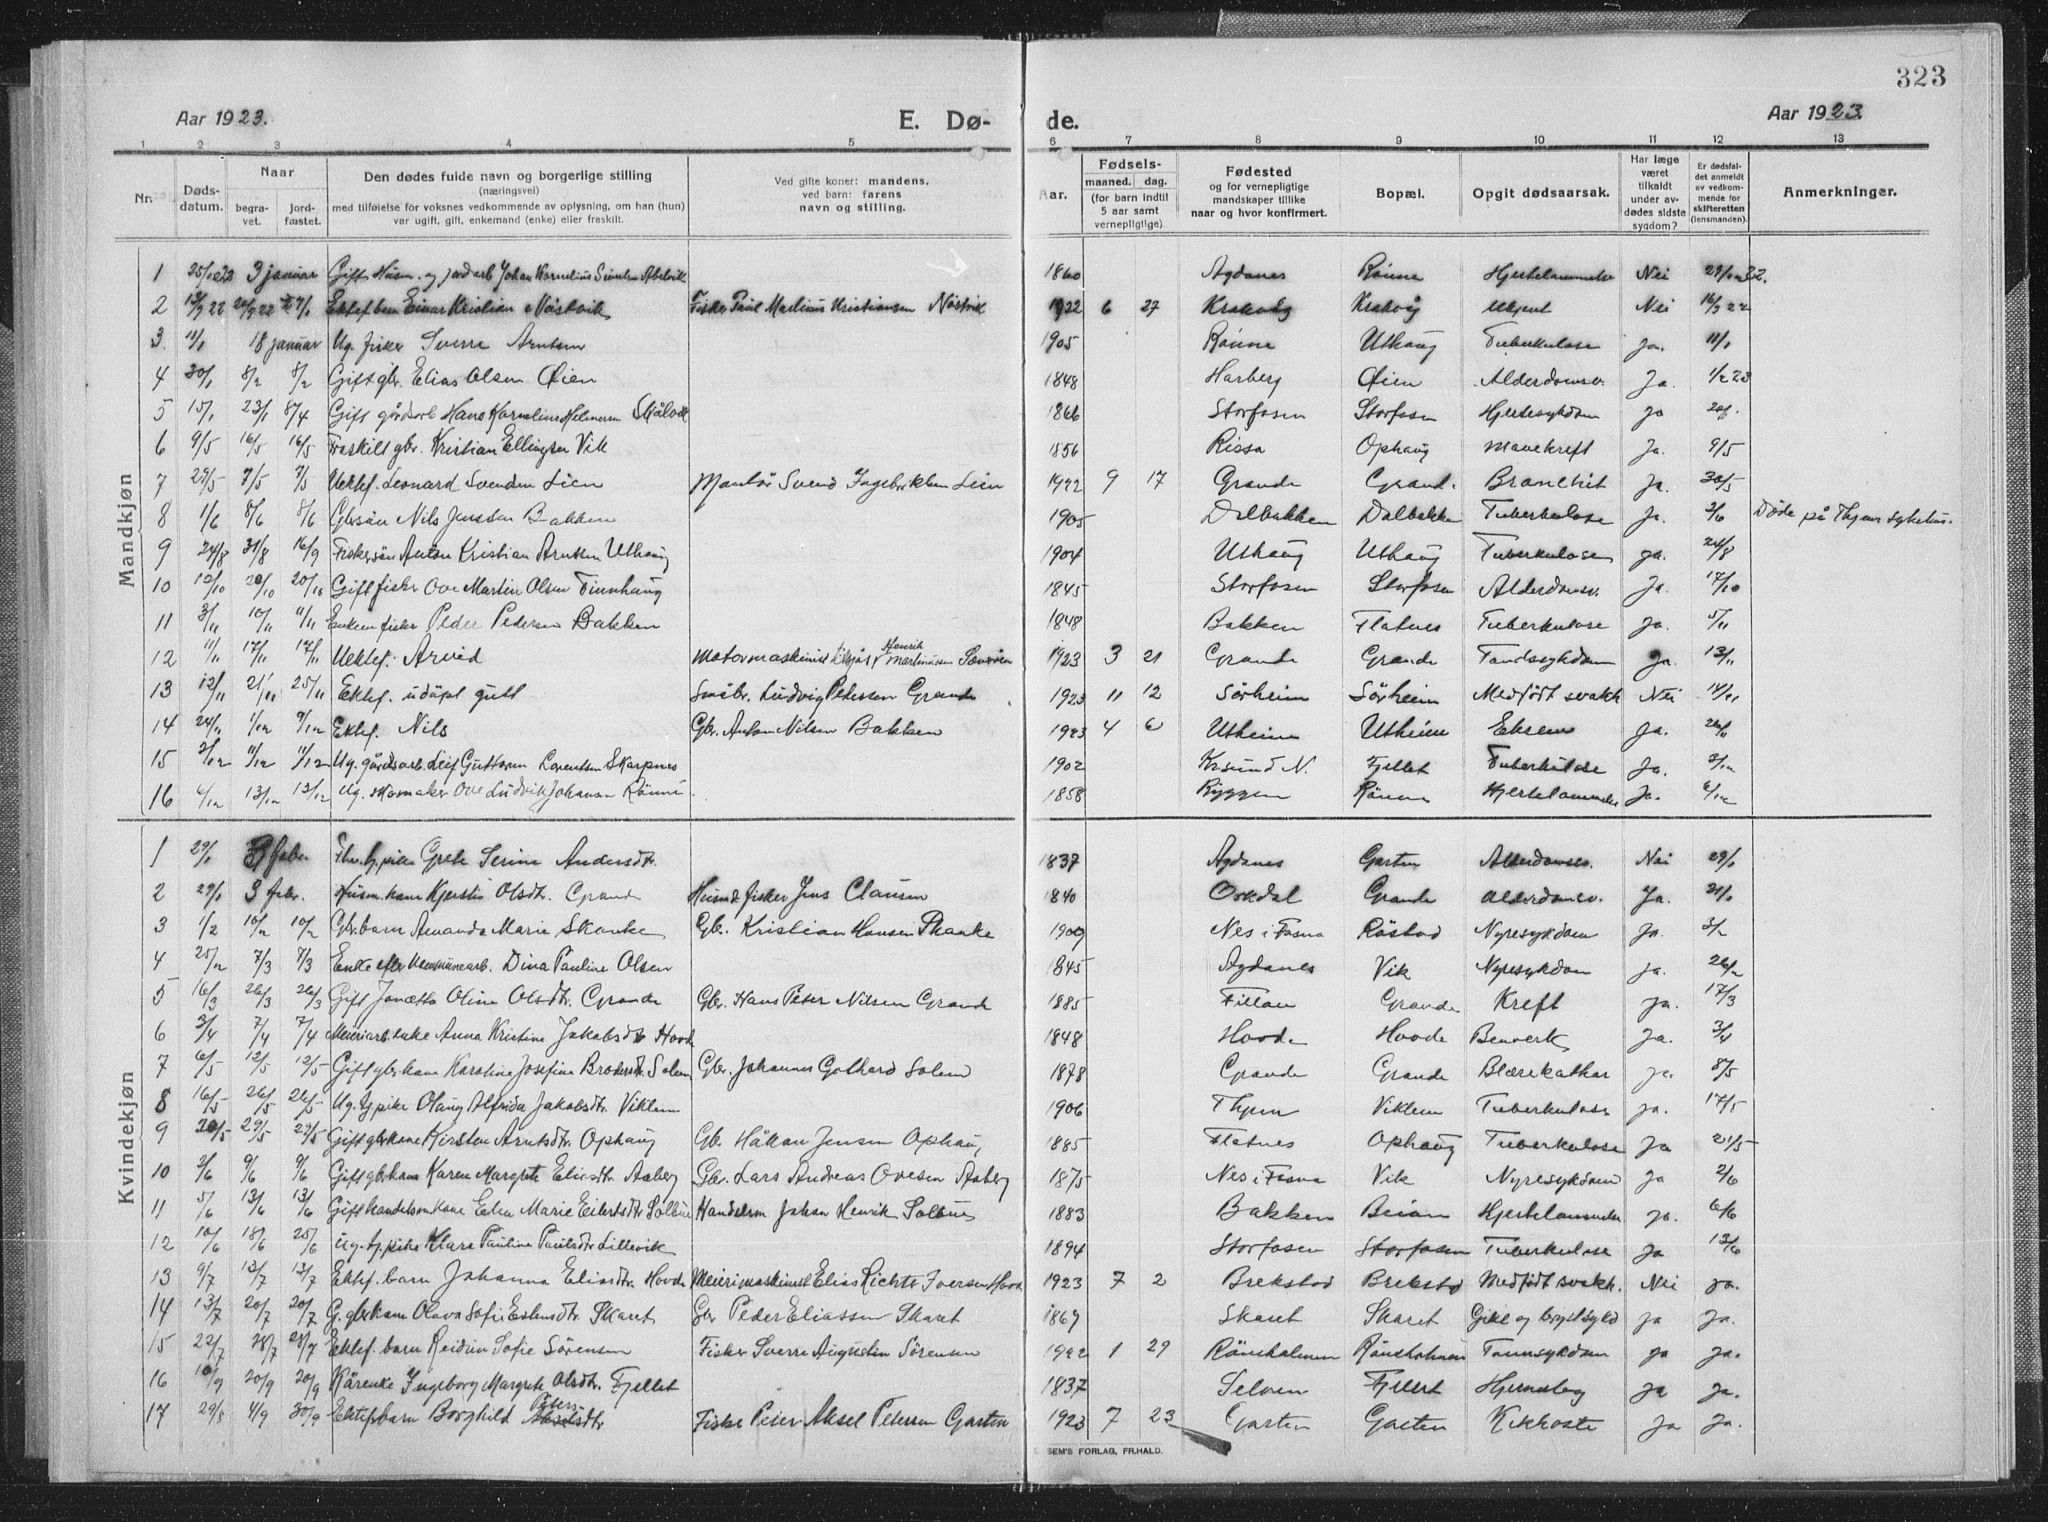 323
Aar 1923. E. Dø- de. Aar 1923.
1 2 3 4 5 6 7 8 9 10 11 12 13
Nr. Døds-datum. Naar begra-vet. jord-fæstet. Den dødes fulde navn og borgerlige stilling (næringsvei) med tilføielse for voksnes vedkommende av oplysning, om han (hun) var ugift, gift, enkemand (enke) eller fraskilt. Ved gifte koner: mandens, ved barn: farens navn og stilling. Aar. Fødsels- maaned. dag. (for barn indtil 5 aar samt vernepligtige) Fødested og for vernepligtige mandskaper tillike naar og hvor konfirmert. Bopæl. Opgit dødsaarsak. Har læge været tilkaldt under av-dødes sidste sygdom? Er dødsfal-det anmeldt av vedkom-mende for skifteretten (lensmanden). Anmerkninger.
Mandkjøn
1 3 januar Gift Husm. og jordarb Johan Kornelius 1860 Agdanes Rønne Hjertelammelse Nei
2 Ektef barn Einar Kristian Næsvik Fisker Paul Martinus Kristiansen Næsvik 1922 6 27 Krakvåg Krakvåg Ukjent Nei 16/9 22
3. 11/1 18 januar Ug. fisker Sverre Arntsen 1905 Rønne Uthaug Tuberkulose Ja. 11/1
4 30/1 8/2 8/2 Gift gbr. Elias Olsen Øien 1848 Harberg Øien Alderdomsv. Ja. 1/2 23
5 15/1 23/1 8/4 Gift gårdsarb Hans Kornelius Helmersen 1866 Storfosen Storfosen Hjertesykdom ja
6 9/5 16/5 16/5 Fraskilt gbr. Kristian Ellingsen Vik 1856 Rissa Ophaug Mavekreft Ja. 9/5
7 29/5 7/5 7/5 Uektef. Leonard Svendsen Lien Montør Svend Ingebriktsen Lien 1922 9 17 Grande Grande Bronchit Ja. 30/5
8 1/6 8/6 8/6 Gbrsøn Nils Jenssen Bakken 1905 Dalbakken Dalbakken Tuberkulose Ja. 2/6 Døde på Thjems sykehus.
9 24/8 31/8 16/9 Fiskersøn Anton Kristian Arntsen Uthaug 1904 Uthaug Uthaug Tuberkulose ja. 24/8
10 12/10 20/10 20/10 Gift fisker Ove Martin Olsen Finnhaug 1845 Storfosen Storfosen Alderdomsv. Ja. 17/10
11 3/11 10/11 11/11 Enkem fisker Peder Pedersen Bakken 1848 Bakken Flatnes Tuberkulose Ja. 5/11
12 11/11 17/11 17/11 Uektef. Arvid Motormaskinist Henrik Martinusen 1923 3 21 Grande Grande Tandsykdom Ja. 13/11
13 12/11 21/11 25/11 Ektef. udøpt gutt Småbr. Ludvig Petersen Grande 1923 11 12 Sørheim Sørheim Medfødt svakh Nei 14/11
14 24/11 1/12 9/12 Ektef. Nils Gbr. Anton Nilsen Bakken 1923 4 6 Utheim Utheim Eksem Ja. 26/11
15 2/12 11/12 11/12 Ug. gårdsarb. Leif Guttorm Lorentsen Skarpnes 1902 Krsund N. Fjellet Tuberkulose Ja. 3/12
16 6/12 13/12 13/12 Ug. skomaker Ove Ludvik Johansen Rønne. 1858 Ryggen Rønne Hjertelammelse Ja. 6/12
Kvindekjøn
1 29/1 3 febr. pike Grete Serine Andersdtr. 1837 Agdanes Garten Alderdomsv. Nei 29/1
2 29/1 3 febr. Husm. kone Kjersti Olsdtr. Grande Husm & fisker Jens Clausen 1840 Orkdal Grande Alderdomsv. Ja. 31/1
3 1/2 10/2 10/2 Gbr.barn Amanda Marie Skanke Gbr. Kristian Hansen Skanke 1909 Nes i Fosna Røstad Nyresykdom Ja. 3/2
4 25/2 7/3 7/3 Enke efter Kommunearb. Dina Pauline Olsen 1845 Agdanes Vik Nyresykdom ja. 26/2
5 16/3 26/3 26/3 Gift Janetta Oline Olsdtr. Grande Gbr. Hans Peter Nilsen Grande 1885 Fillan Grande Kreft ja. 17/3
6 3/4 7/4 7/4 Meieriarb enke Anna Kristine Jakobsdtr Hovde 1848 Hovde Hovde Benverk Ja. 3/4
7 6/5 12/5 12/5 Gift gbrkone Karoline Josefine Brodersdtr. Solem Gbr. Johannes Gothard Solem 1878 Grande Grande Blærekatharr ja. 8/5
8 16/5 26/5 26/5 Ug. tj.pike Olaug Alfrida Jakobsdtr. Viklem 1906 Thjem Viklem Tuberkulose ja. 17/5
9 20/5 29/5 29/5 Gift gbrkone Kirsten Arntsdtr. Ophaug Gbr. Håkon Jensen Ophaug 1885 Flatnes Ophaug Tuberkulose Ja 21/5
10 2/6 9/6 9/6 Gift gbrkone Karen Margrete Eliasdtr. Aaberg Gbr. Lars Andreas Ovesen Aaberg 1875 Nes i Fosna Vik Nyresykdom Ja 2/6
11 5/6 13/6 13/6 Gift handelsm kone Elen Marie Eilertsdtr Solbue Handelsm Johan Henrik Solbue 1883 Bakken Beian Hjertelammelse ja. 6/6
12 10/6 18/6 25/6 Ug. tj.pike Klara Pauline Paulsdtr Lillevik 1894 Storfosen Storfosen Tuberkulose Ja 13/6
13 9/7 13/7 13/7 Ektef. barn Johanna Eliasdtr. Hovde Meierimaskinist Elias Richter Iversen Hovde 1923 7 2 Brekstad Brekstad Medfødt svakh. Nei ja.
14 13/7 20/7 20/7 G. gbrkone Olava Sofie Estensdtr. Skaret Gbr Peder Eliassen Skaret 1869 Skaret Skaret Gikt og brystsykd Ja Ja.
15 22/7 28/7 28/7 Ektef. barn Reidun Sofie Sørensen Fisker Sverre Augustin Sørensen 1922 1 29 Rønsholmen Rønsholmen Tannsykdom Ja Ja.
16 10/9 20/9 20/9 Kårenke Ingeborg Margrete Olsdtr. Fjellet 1837 Selven Fjellet Hjerneslag Ja Ja.
17 29/8 4/9 30/9 Ektef.barn Borghild Peters Akselsdtr Fisker Peter Aksel Petersen Garten 1923 7 23 Garten Garten Kikhoste Ja Ja.
SEM'S FORLAG, FR.HALD.